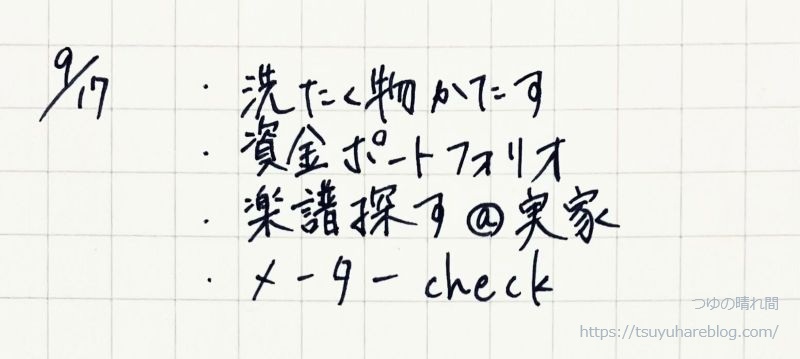 9/17 ・洗たく物かたす
・資金ポートフォリオ
・楽譜探す@実家
・メーター check
つゆの晴れ間
https://tsuyuhareblog.com/